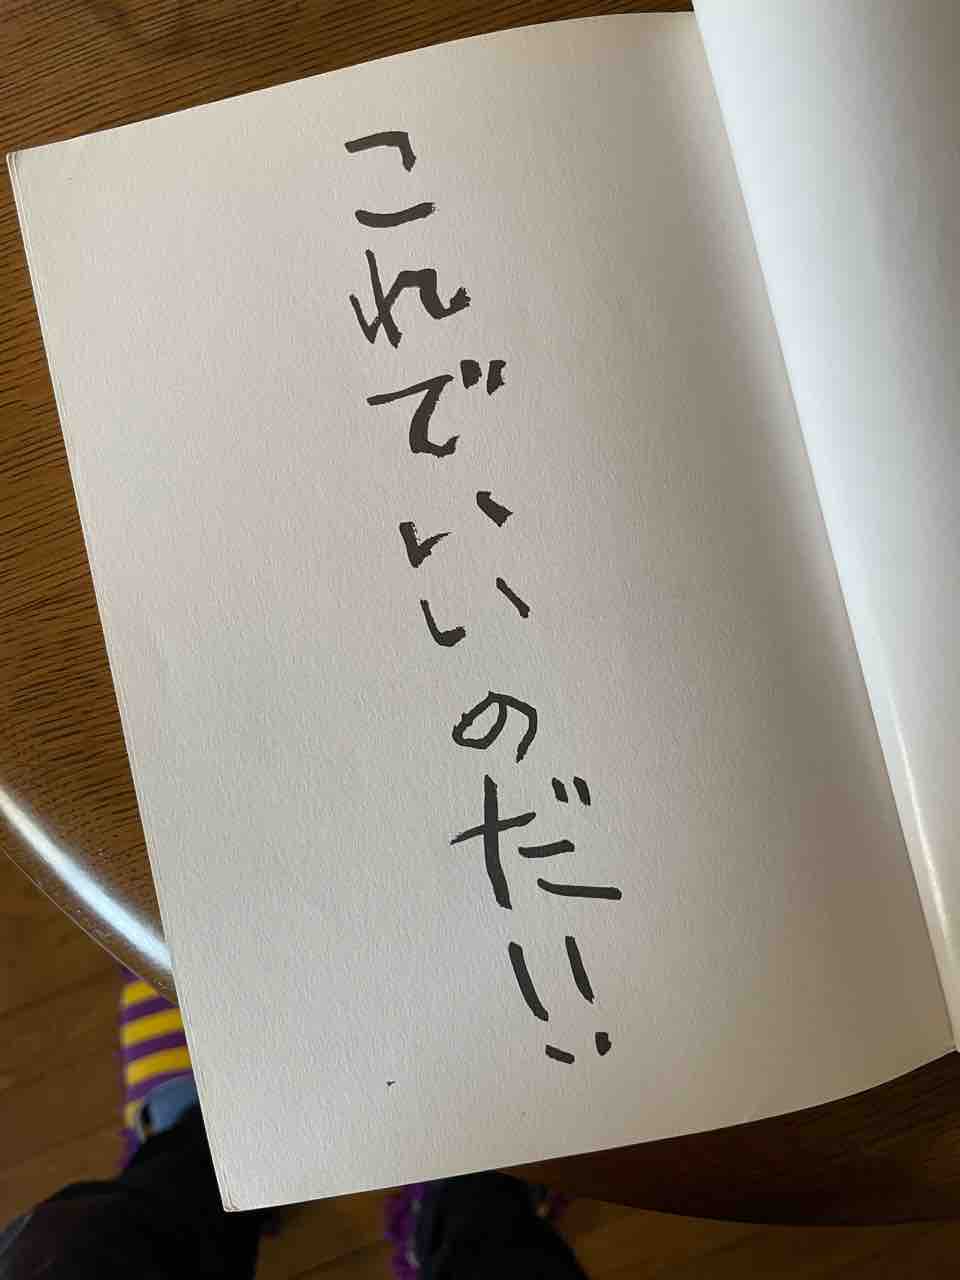 これでいいのだ!!